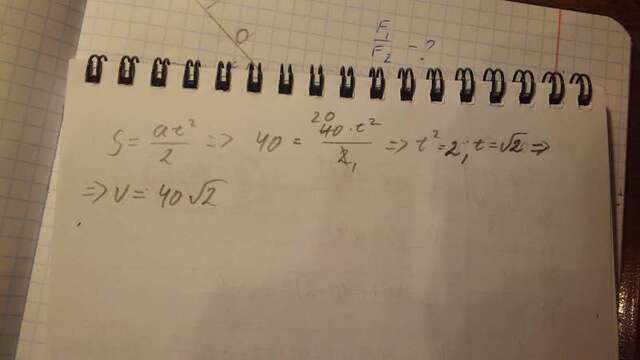 O
F₁/F₂ - ?
S = at²/2 => 40 = 20 40·t²/2 1 => t² = 2, t = √2 =>
=> V = 40√2